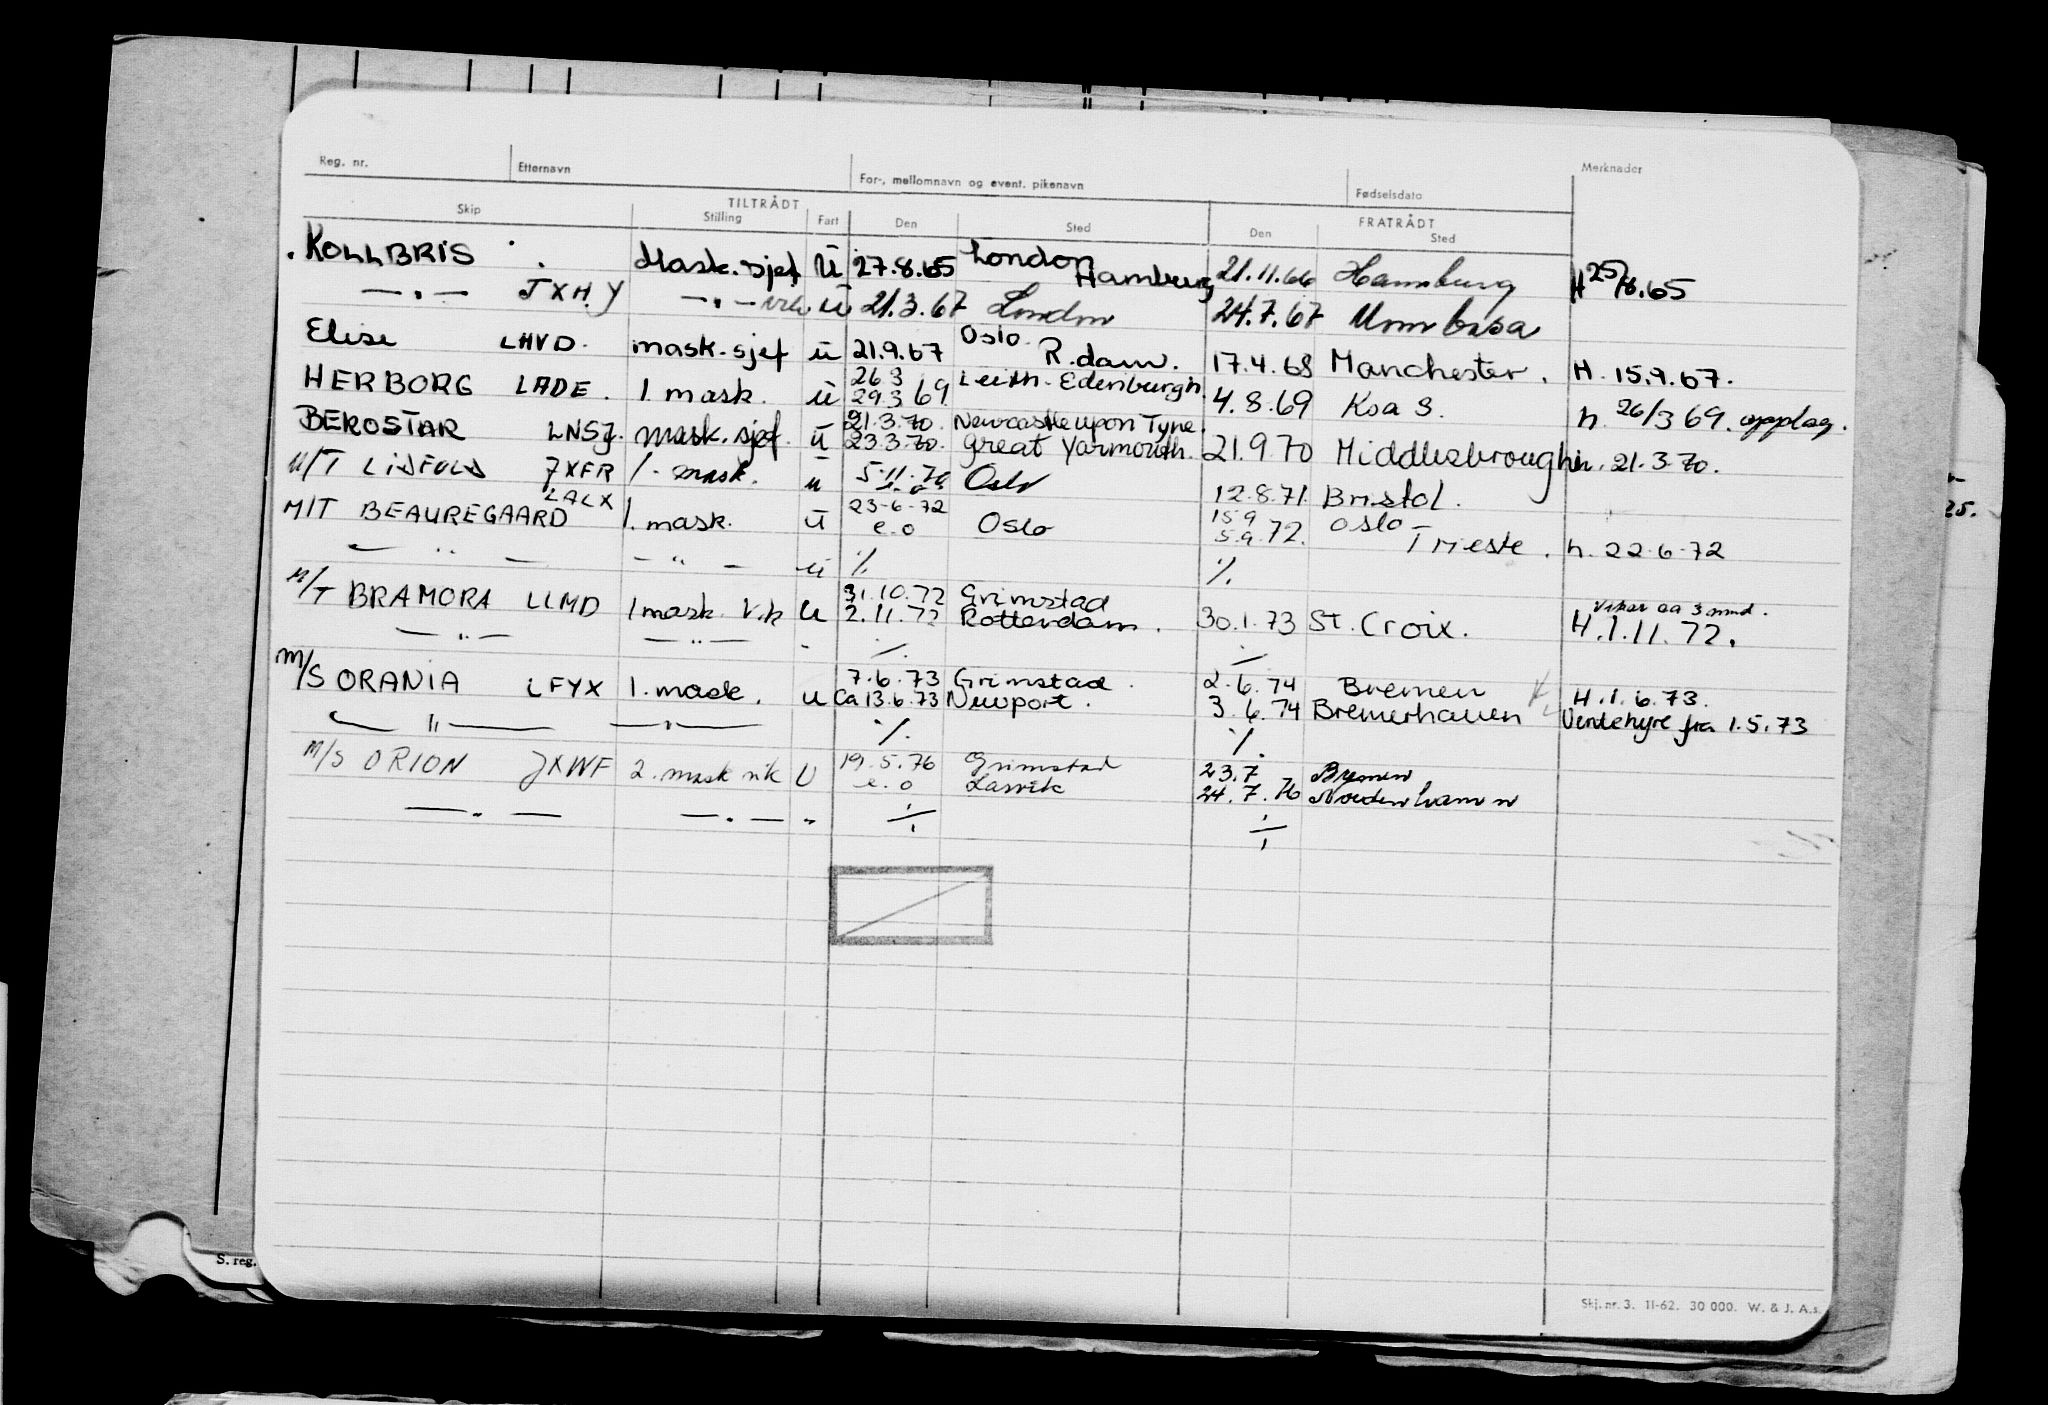 Reg. nr. Etternavn For-, mellomnavn og event. pikenavn Fødselsdato Merknader
TILTRÅDT FRATRÅDT
Skip Stilling Fart Den Sted Den Sted
KOLLBRIS Mask.sjef U 27.8.65 London Hamburg 21.11.66 Hamburg H 25/8.65
—„— JXHY —„— vik u 21.3.67 London 24.7.67 Mombasa
Elise LHVD. mask.sjef u 21.9.67 Oslo R.dam. 17.4.68 Manchester. H. 15.9.67.
HERBORG LADE. 1. mask. u 26.3 29.3.69. Leith-Edenburgh. 4.8.69 Ksa S. h. 26/3 69. opplag.
BEROSTAR LNSJ. mask.sjef. u 21.3.70. 23.3.70. Newcastle upon Tyne. Great Yarmouth. 21.9.70 Middlesbrough h. 21.3.70.
M/T JXFR 1. mask. u 5.11.70 e.o. Oslo 12.8.71. Bristol.
M/T BEAUREGAARD LALX 1. mask. u 23-6-72 e.o Oslo 15.9 5.9.72. Oslo Trieste. h. 22-6-72
—„— —„— u ./. ./.
M/T BRAMORA LLMD 1 mask V.k u 31.10.72 2.11.72 Grimstad Rotterdam. 30.1.73 St. Croix. Vikar ca 3 mnd. H.1.11.72.
—„— —„— - ./. ./.
M/S ORANIA LFYX 1. mask. u 7.6.73 Ca 13.6.73 Grimstad. Newport. 2.6.74 3.6.74 Bremen Bremerhaven H.1.6.73. Ventehyre fra 1.5.73
—„— —„— ./. ./.
M/S ORION JXWF 2. mask vik U 19.5.76 e.o Grimstad Larvik 23.7 24.7.76 Bremen Nordenhamn
—„— —„— „ ./. ./.
S. reg.
25.
Skj. nr. 3. 11-62. 30 000. W. & J. A.s.